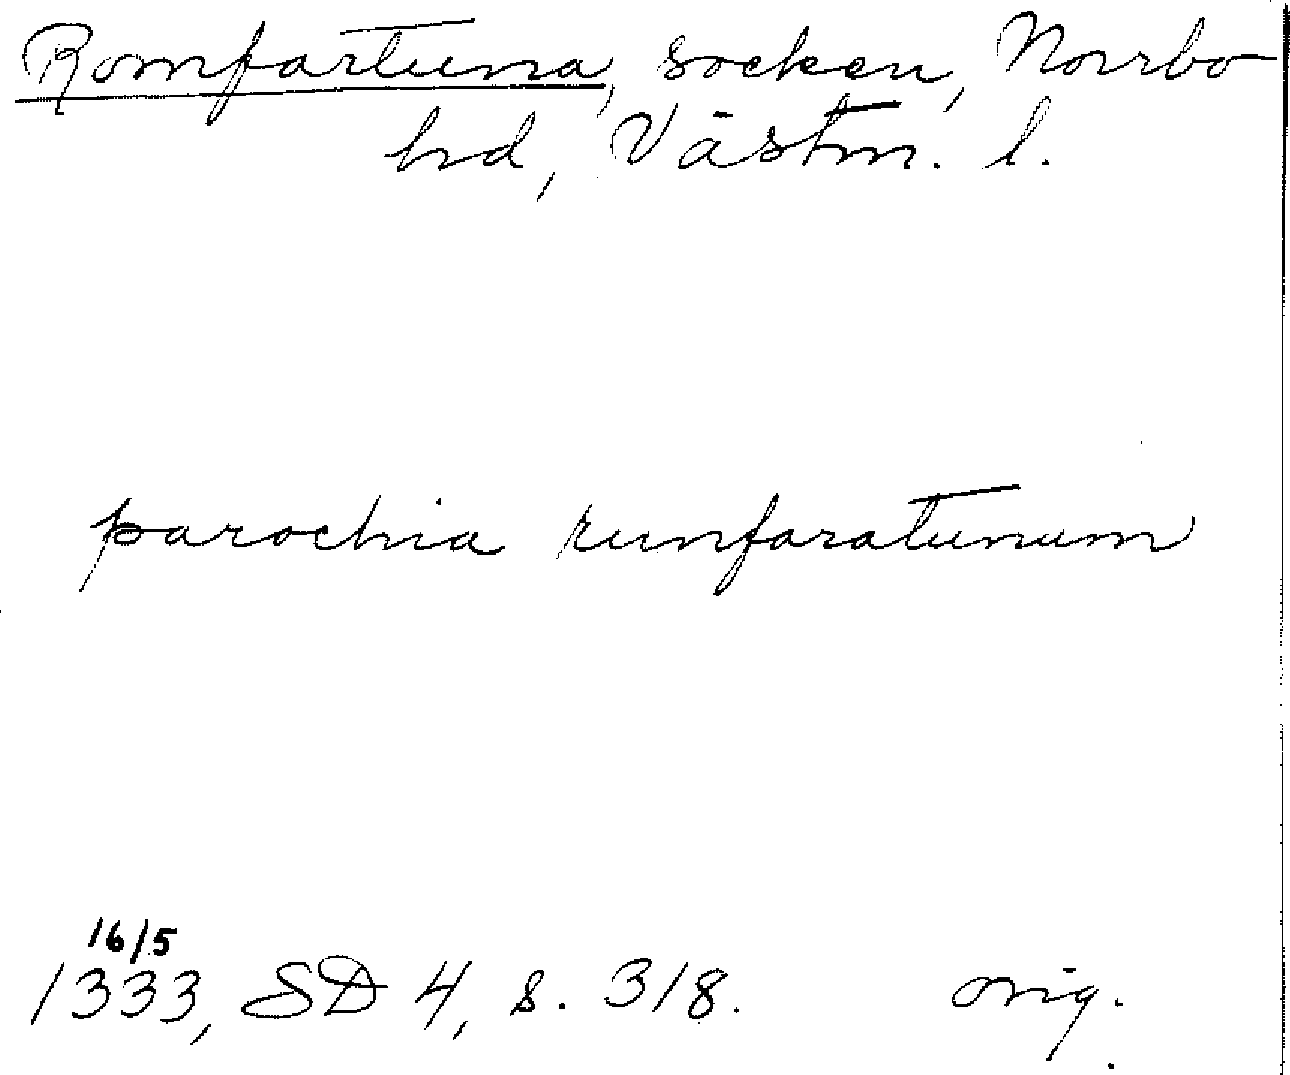 Romfartuna, socken, Norrbo
hd, Västm. l.
parochia runfaratunum
16/5
1333, SD 4, s. 318. orig.